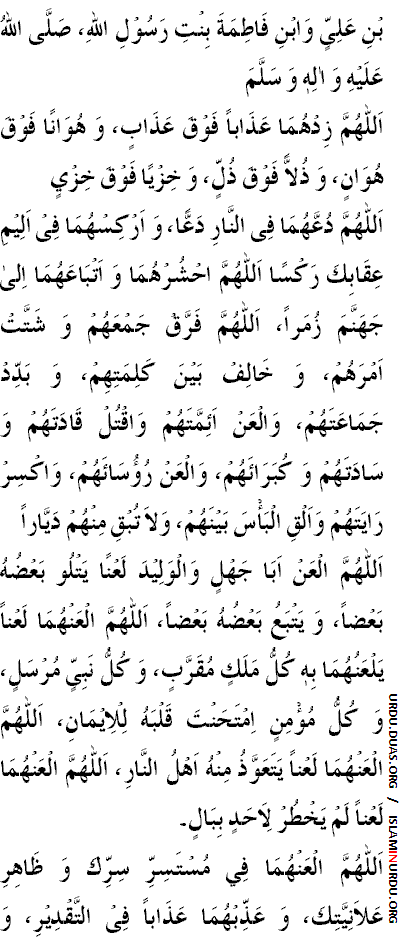 بْنِ عَلِيٍّ وَابْنِ فَاطِمَةَ بِنْتِ رَسُوْلِ اللهِ، صَلَّى اللهُ
عَلَيْهِ وَ الِهٖ وَ سَلَّمَ
اَللّٰهُمَّ زِدْهُمَا عَذَاباً فَوْقَ عَذَابٍ، وَ هُوَانًا فَوْقَ
هُوَانٍ، وَ ذُلاًّ فَوْقَ ذُلٍّ، وَ خِزْيًا فَوْقَ خِزْيٍ
اَللّٰهُمَّ دُعَّهُمَا فِى النَّارِ دَعًّا، وَ اَرْكِسْهُمَا فِىْ اَلِيْمِ
عِقَابِكَ رَكْسًا اَللّٰهُمَّ احْشُرْهُمَا وَ اَتْبَاعَهُمَا اِلىٰ
جَهَنَّمَ زُمَراً، اَللّٰهُمَّ فَرَّقْ جَمْعَهُمْ وَ شَتَّتْ
اَمْرَهُمْ، وَ خَالِفْ بَيْنَ كَلِمَتِهِمْ، وَ بَدِّدْ
جَمَاعَتَهُمْ، وَالْعَنْ اَئِمَّتَهُمْ وَاقْتُلْ قَادَتَهُمْ وَ
سَادَتَهُمْ وَ كُبَرَائَهُمْ، وَالْعَنْ رُؤُسَائَهُمْ، وَاكْسِرْ
رَايَتَهُمْ وَاَلْقِ الْبَأْسَ بَيْنَهُمْ، وَلاَ تُبْقِ مِنْهُمْ دَيَّاراً
اَللّٰهُمَّ الْعَنْ اَبَا جَهْلٍ وَالْوَلِيْدَ لَعْنًا يَتْلُو بَعْضُهُ
بَعْضاً، وَ يَتْبَعُ بَعْضُهُ بَعْضاً، اَللّٰهُمَّ الْعَنْهُمَا لَعْناً
يَلْعَنُهُمَا بِهِ كُلُّ مَلَكٍ مُقَرَّبٍ، وَ كُلُّ نَبِيٍّ مُرْسَلٍ،
وَ كُلُّ مُؤْمِنٍ اِمْتَحَنْتَ قَلْبَهُ لِلْاِيْمَانِ، اَللّٰهُمَّ
الْعَنْهُمَا لَعْناً يَتَعَوَّذُ مِنْهُ اَهْلُ النَّارِ، اَللّٰهُمَّ الْعَنْهُمَا
لَعْناً لَمْ يَخْطُرْ لِاَحَدٍ بِبَالٍ۔
اَللّٰهُمَّ الْعَنْهُمَا فِي مُسْتَسِرِّ سِرِّكَ وَ ظَاهِرِ
عَلاَنِيَّتِكَ، وَ عَذِّبْهُمَا عَذَاباً فِىْ التَّقْدِيْرِ، وَ
URDU.DUAS.ORG / ISLAMINURDU.ORG